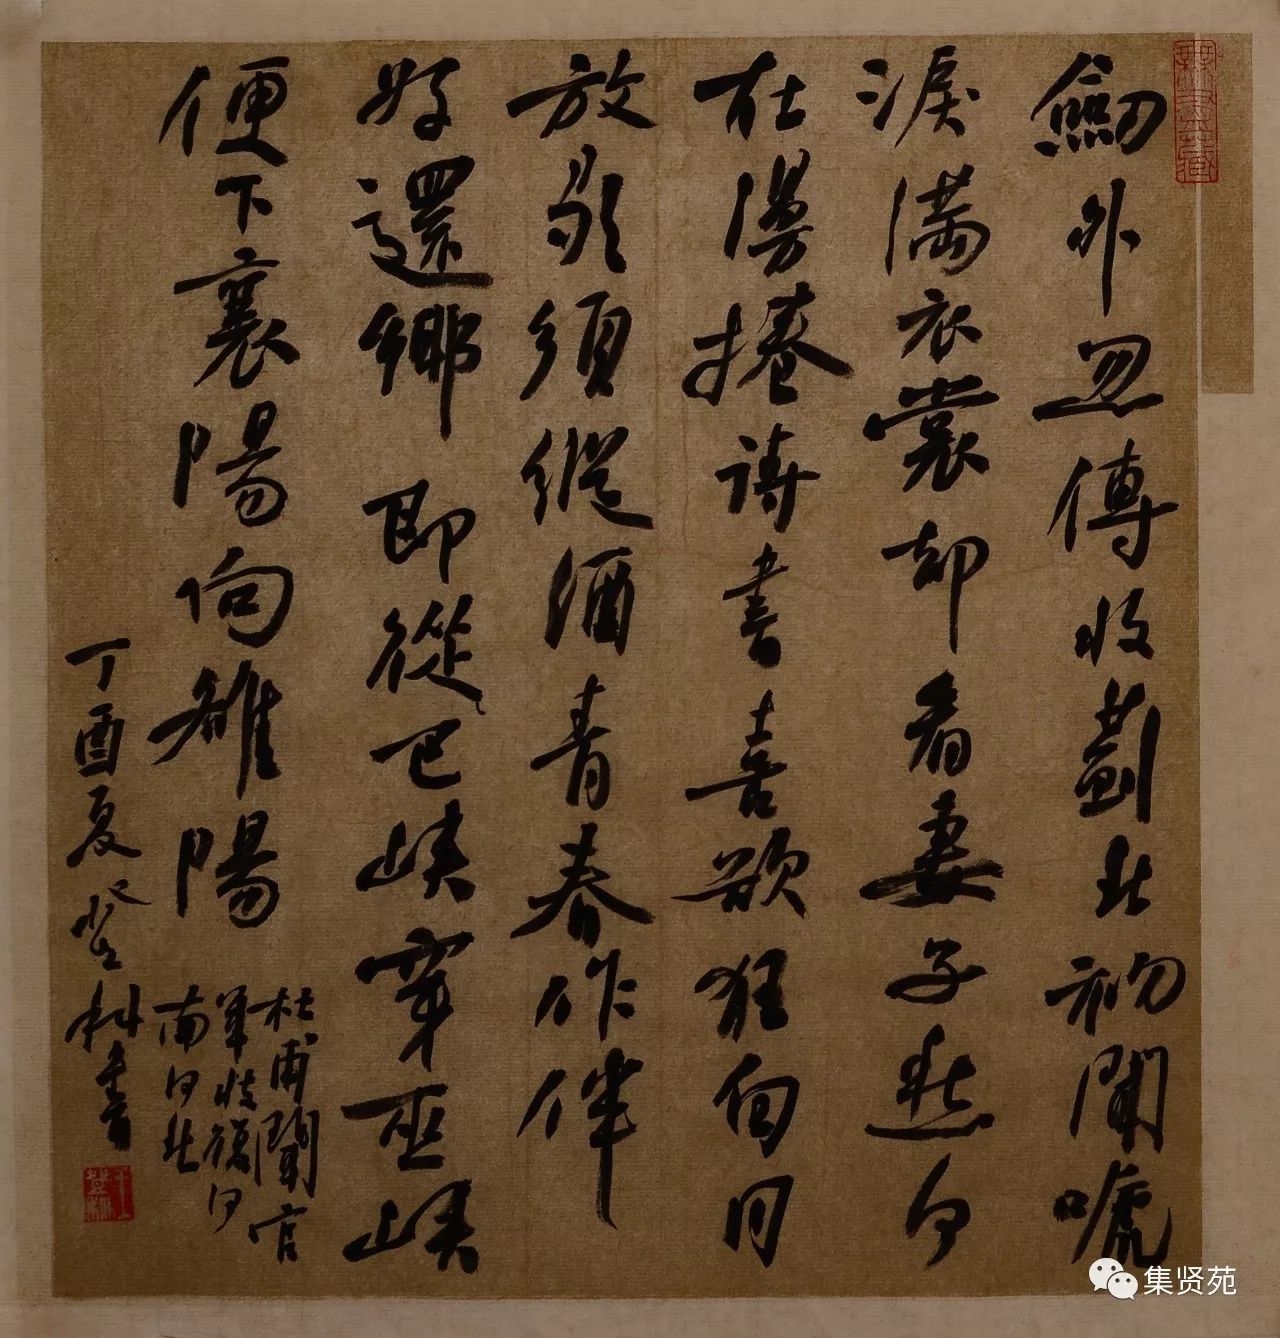 劒外忽傳收薊北初聞嗁
淚滿衣裳却看妻子愁何
在漫捲詩書喜欲狂白日
放歌須縱酒青春作伴
好還鄉即從巴峽穿巫峽
便下襄陽向雒陽
杜甫聞官
軍收復河
南河北
丁酉夏登科書
集贤苑